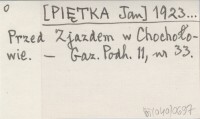 o
[PIĘTKA Jan] 1923...
Przed Zjazdem w Chochoło-
wie. — Gaz. Podh. 11, nr 33.